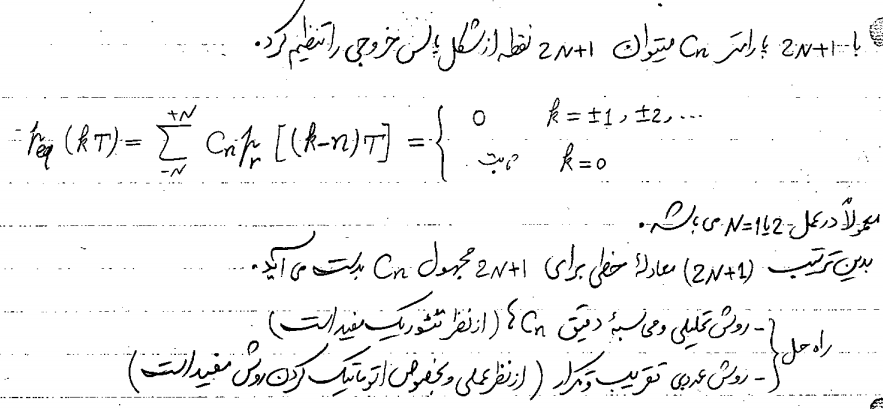 با 2N+1 پارامتر Cn میتوان 2N+1 نقطه از شکل پالس خروجی را تنظیم کرد.
p_eq (kT) = Σ_{-N}^{+N} Cn p_r [(k-n)T] = { 0 k = ±1, ±2, ...
ثابت k = 0
معمولاً در عمل N=1 یا 2 می باشد.
بدین ترتیب (2N+1) معادلهٔ خطی برای 2N+1 مجهول Cn بدست می آید.
راه حل { - روش تحلیلی و محاسبهٔ دقیق Cn ها (از نظر تئوریک مفید است)
- روش عددی تقریب و تکرار (از نظر عملی و بخصوص اتوماتیک کردن روش مفید است)